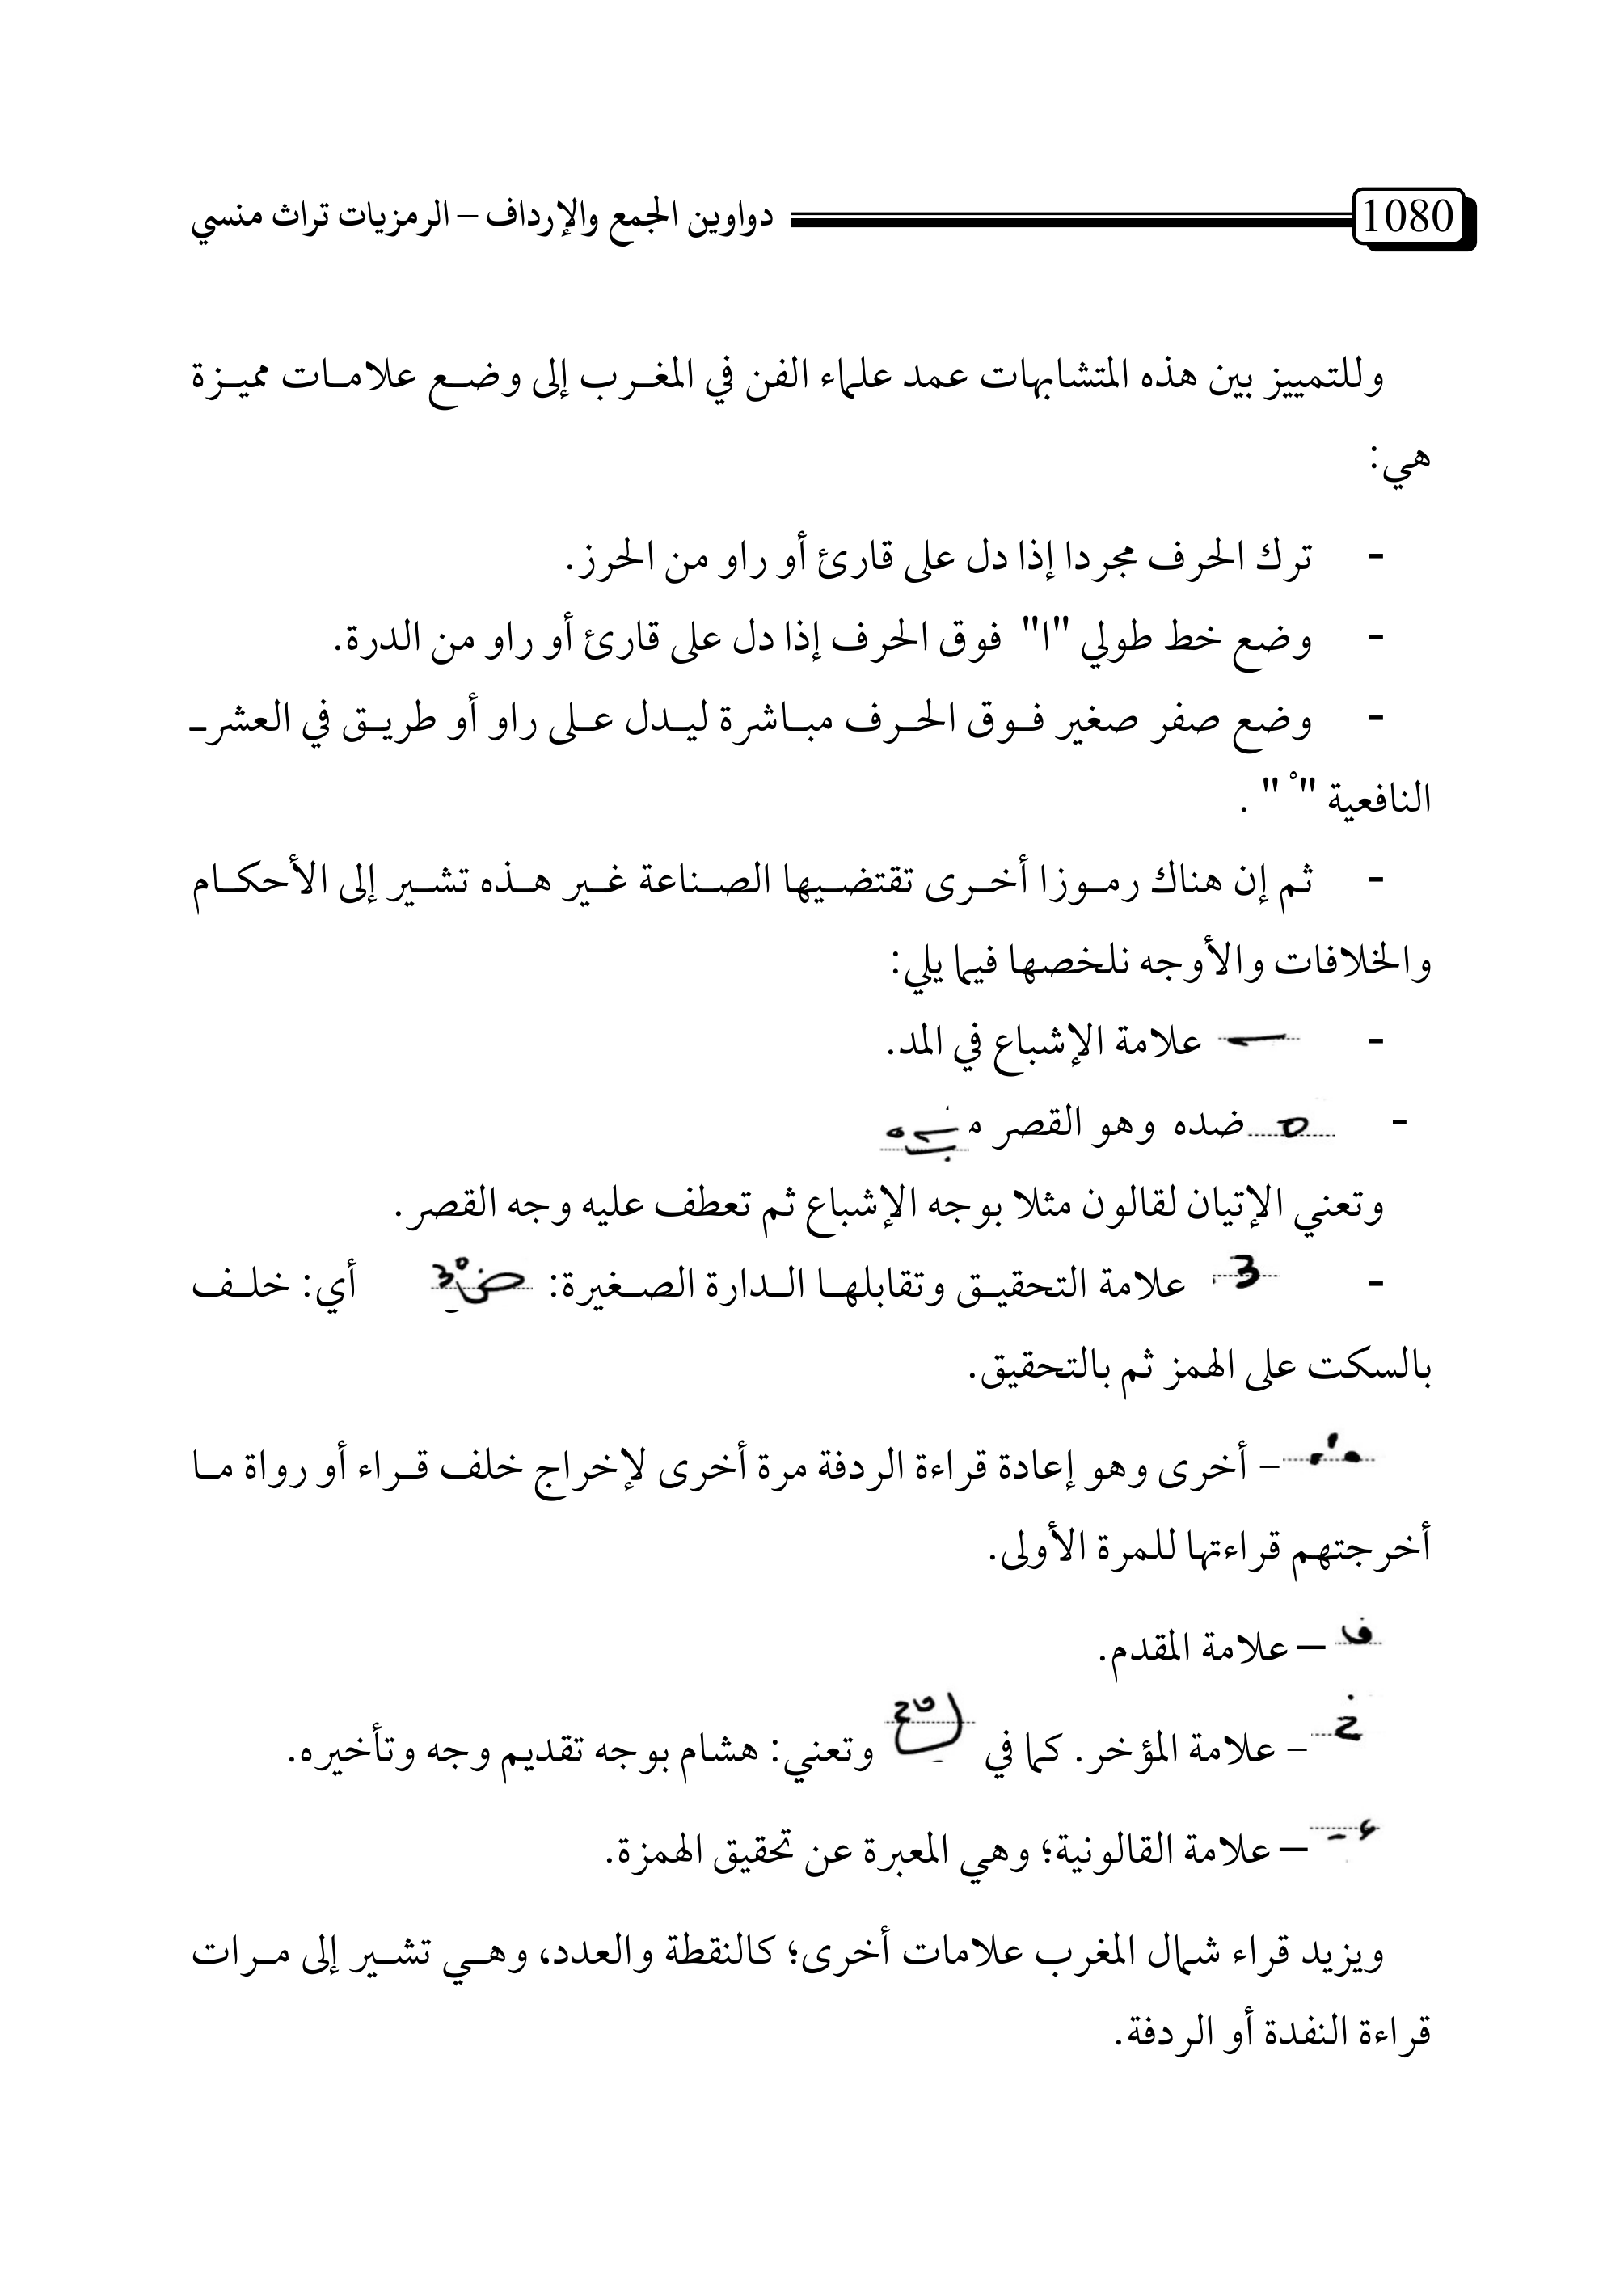 1080
دواوين الجمع والإرداف – الرمزيات تراث منسي
وللتمييز بين هذه المتشابهات عمد علماء الفن في المغرب إلى وضع علامات مميزة
هي:
- ترك الحرف مجردا إذا دل على قارئ أو راو من الحرز.
- وضع خط طولي "ا" فوق الحرف إذا دل على قارئ أو راو من الدرة.
- وضع صفر صغير فوق الحرف مباشرة ليدل على راو أو طريق في العشر
النافعية "ْ " .
- ثم إن هناك رموزا أخرى تقتضيها الصناعة غير هذه تشير إلى الأحكام
والخلافات والأوجه نلخصها فيما يلي:
- علامة الإشباع في المد.
- ضده وهو القصر م
وتعني الإتيان لقالون مثلا بوجه الإشباع ثم تعطف عليه وجه القصر.
- علامة التحقيق وتقابلها الدارة الصغيرة: أي: خلف
بالسكت على الهمز ثم بالتحقيق.
– أخرى وهو إعادة قراءة الردفة مرة أخرى لإخراج خلف قراء أو رواة ما
أخرجتهم قراءتها للمرة الأولى.
ف – علامة المقدم.
خ – علامة المؤخر. كما في وتعني: هشام بوجه تقديم وجه وتأخيره.
– علامة القالونية؛ وهي المعبرة عن تحقيق الهمزة.
ويزيد قراء شمال المغرب علامات أخرى؛ كالنقطة والعدد، وهي تشير إلى مرات
قراءة النفدة أو الردفة.